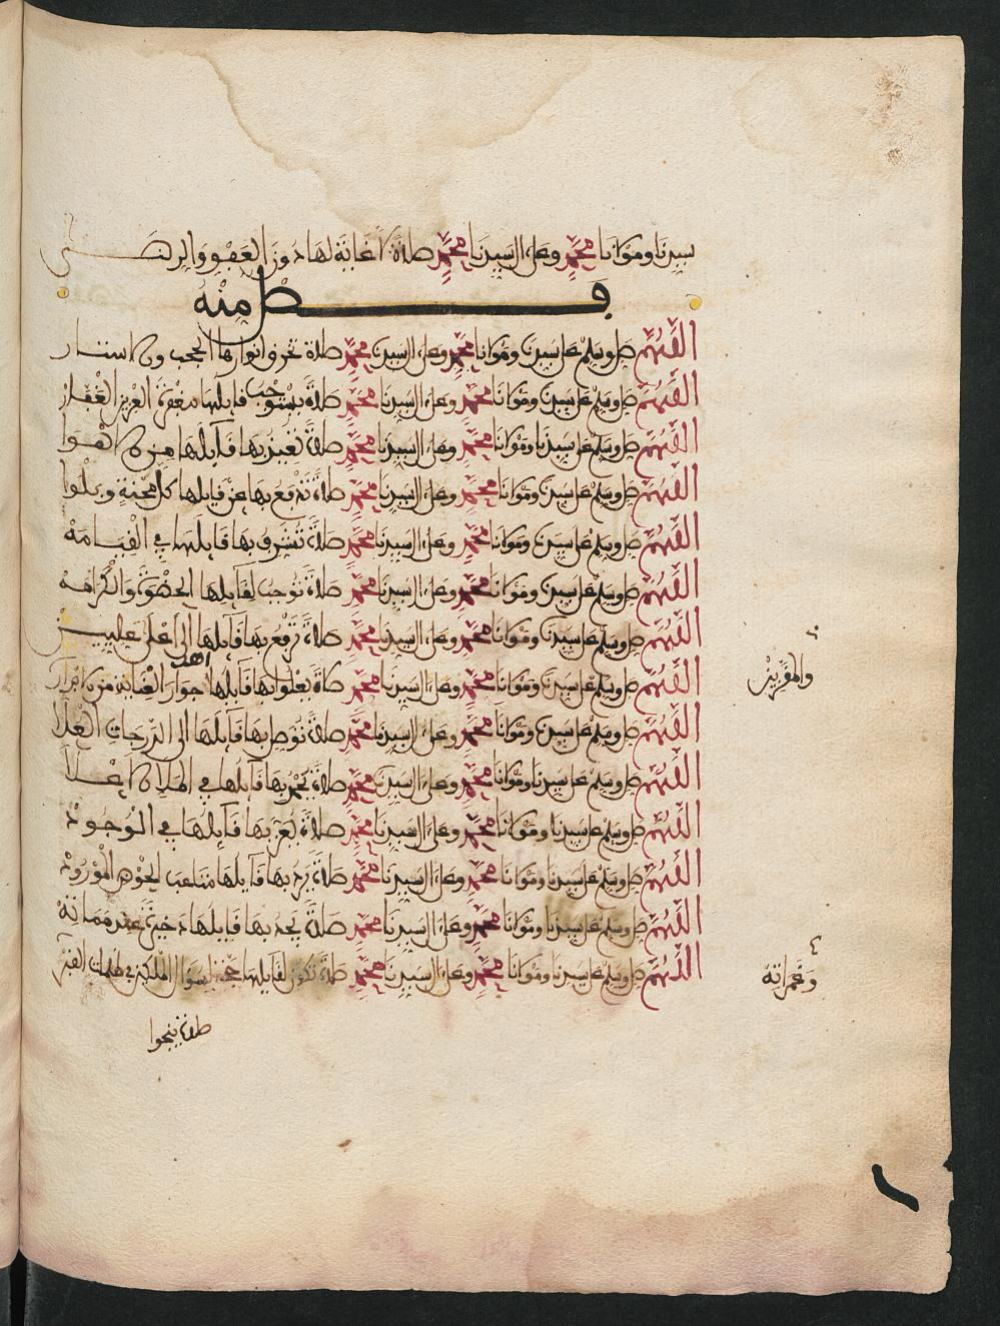 سيدنا ومولانا محمد وعلى ءال سيدنا محمد صلاة لا غاية لها دون العفو والرضى
فصل منه
اللهم صل وسلم على سيدنا ومولانا محمد وعلى ءال سيدنا محمد صلاة تخرق انوارها الحجب والاستار
اللهم صل وسلم على سيدنا ومولانا محمد وعلى ءال سيدنا محمد صلاة يستوجب قايلها مغفرة العزيز الغفار
اللهم صل وسلم على سيدنا ومولانا محمد وعلى ءال سيدنا محمد صلاة بها قايلها من الاهوا
اللهم صل وسلم على سيدنا ومولانا محمد وعلى ءال سيدنا محمد صلاة تدفع بها عن قايلها كل محنة وبلوا
اللهم صل وسلم على سيدنا ومولانا محمد وعلى ءال سيدنا محمد صلاة تشرف بها قايلها في القيامه
اللهم صل وسلم على سيدنا ومولانا محمد وعلى ءال سيدنا محمد صلاة توجب لقايلها الحضوة والكرامه
اللهم صل وسلم على سيدنا ومولانا محمد وعلى ءال سيدنا محمد صلاة ترفع بها قايلها الى اعلى عليين
اللهم صل وسلم على سيدنا ومولانا محمد وعلى ءال سيدنا محمد صلاة يعلوا بها قايلها جوار اهل العناية من الابرار
والمقربين
اللهم صل وسلم على سيدنا ومولانا محمد وعلى ءال سيدنا محمد صلاة توصل بها قايلها الى الدرجات العلا
اللهم صل وسلم على سيدنا ومولانا محمد وعلى ءال سيدنا محمد صلاة بها قايلها في الملا الاعلا
اللهم صل وسلم على سيدنا ومولانا محمد وعلى ءال سيدنا محمد صلاة بها قايلها في الوجود
اللهم صل وسلم على سيدنا ومولانا محمد وعلى ءال سيدنا محمد صلاة يرد بها قايلها الحوض المورود
اللهم صل وسلم على سيدنا ومولانا محمد وعلى ءال سيدنا محمد صلاة يجد بها قايلها ذخيرة عند مماته
وغمراته
اللهم صل وسلم على سيدنا ومولانا محمد وعلى ءال سيدنا محمد صلاة تكون لقايلها حجة لسوال الملكين في ظلمات القبر
صلاة ينجوا